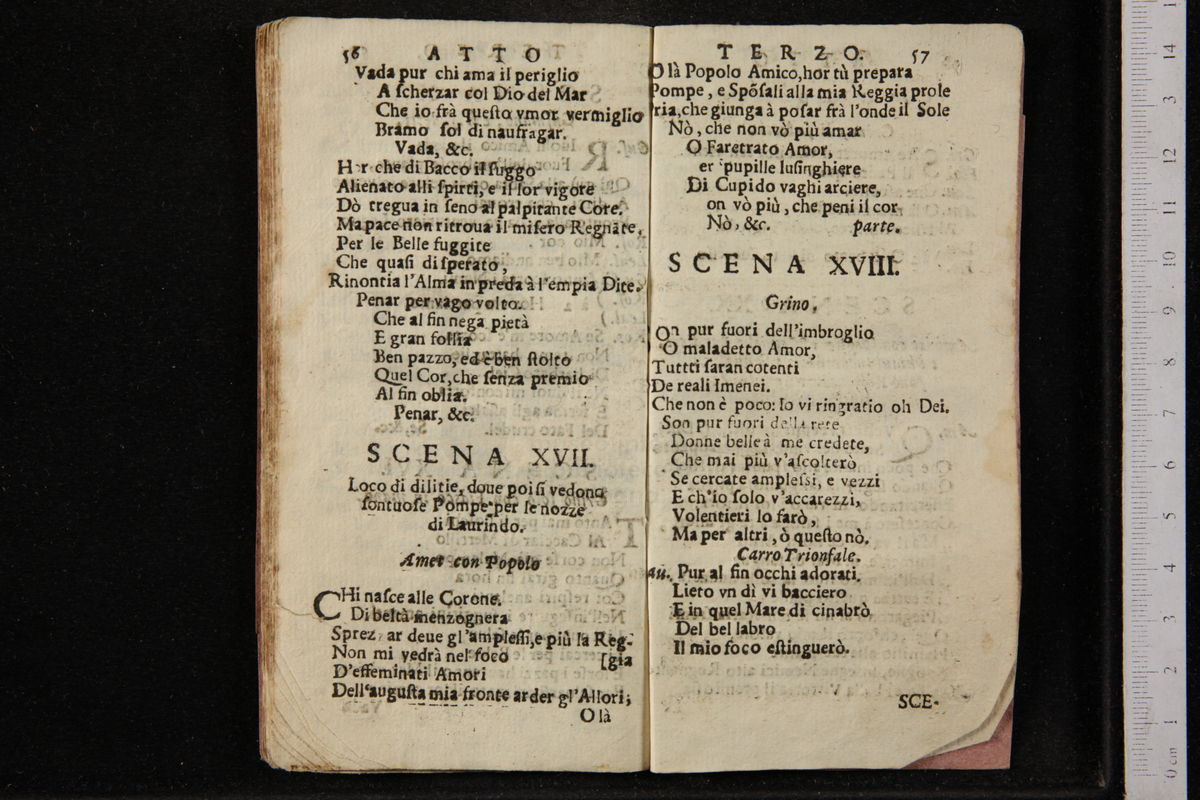 56 ATTO
Vada pur chi ama il periglio
A ſcherzar col Dio del Mar
Che io frà queſto vmor vermiglio
Bramo ſol di naufragar.
Vada, &c.
H r che di Bacco il ſuggo
Alienato alli ſpirti, e il ſor vigore
Dò tregua in ſeno al palpitante Core.
Ma pace non ritroua il miſero Regnāte,
Per le Belle fuggite
Che quaſi diſperato,
Rinontia l'Alma in preda à l'empia Dite.
Penar per vago volto.
Che al fin nega pietà
E gran follia
Ben pazzo, ed è ben ſtolto
Quel Cor, che ſenza premio
Al fin oblia.
Penar, &c.
SCENA XVII.
Loco di dilitie, doue poi ſi vedono
ſontuoſe Pompe per le nozze
di Laurindo.
Amet con Popolo
CHi naſce alle Corone.
Di beltà menzognera
Sprez ar deue gl'ampleſſi, e più la Reg-
Non mi vedrà nel foco [gia
D'effeminati Amori
Dell'auguſta mia fronte arder gl'Allori;
O là
TERZO. 57
O là Popolo Amico, hor tù prepara
Pompe, e Spōſali alla mia Reggia prole
ria, che giunga à poſar frà l'onde il Sole
Nò, che non vò più amar
O Faretrato Amor,
er pupille luſinghiere
Di Cupido vaghi arciere,
on vò più, che peni il cor
Nò, &c. parte.
SCENA XVIII.
Grino.
On pur fuori dell'imbroglio
O maladetto Amor,
Tuttti ſaran cotenti
De reali Imenei.
Che non è poco: Io vi ringratio oh Dei.
Son pur fuori della rete
Donne belle à me credete,
Che mai più v'aſcolterò
Se cercate ampleſsi, e vezzi
E ch'io ſolo v'accarezzi,
Volentieri lo farò,
Ma per altri, ò queſto nò.
Carro Trionfale.
au. Pur al fin occhi adorati.
Lieto vn dì vi bacciero
E in quel Mare di cinabrò
Del bel labro
Il mio foco eſtinguerò.
SCE-
0 cm 1 2 3 4 5 6 7 8 9 10 11 12 13 14